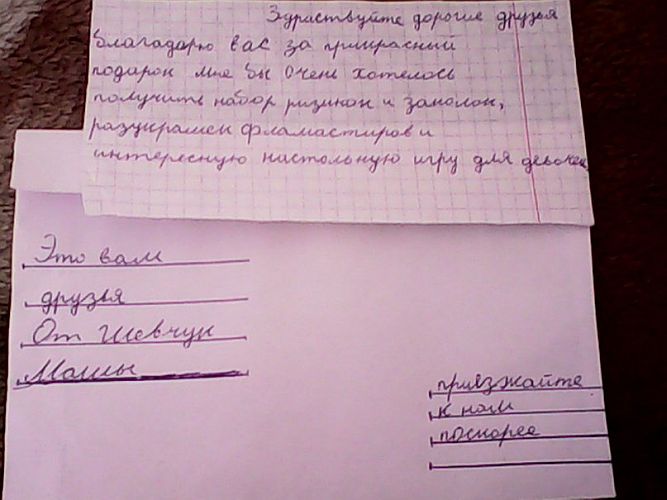 Здраствуйте дорогие друзья
Благадарю вас за прикрасный
подарок мне бы очень хотелось
получить набор ризинок и заколок,
разукрашек фламастиров и
интересную настольную игру для девочек
Это вам
друзья
От Шевчук
Машы
приезжайте
к нам
поскорее